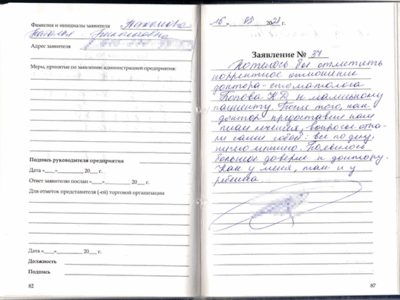 Фамилия и инициалы заявителя
Наталья
Адрес заявителя
Меры, принятые по заявлению администрацией предприятия:
Подпись руководителя предприятия
Дата «___»__________ 20___ г.
Ответ заявителю послан «___»__________ 20___ г.
Для отметок представителя (-ей) торговой организации
Дата «___»__________ 20___ г.
Должность
Подпись
82
16 03 г.
Заявление № 37
Хотелось бы отметить
корректное отношение
доктора-стоматолога
Попова к маленькому
пациенту. После того, как
доктор предоставил нам
план лечения, вопросы отпа-
ли сами собой: все по делу,
ничего лишнего. Появилось
доверие к доктору.
Как у меня, так и у
ребенка.
87